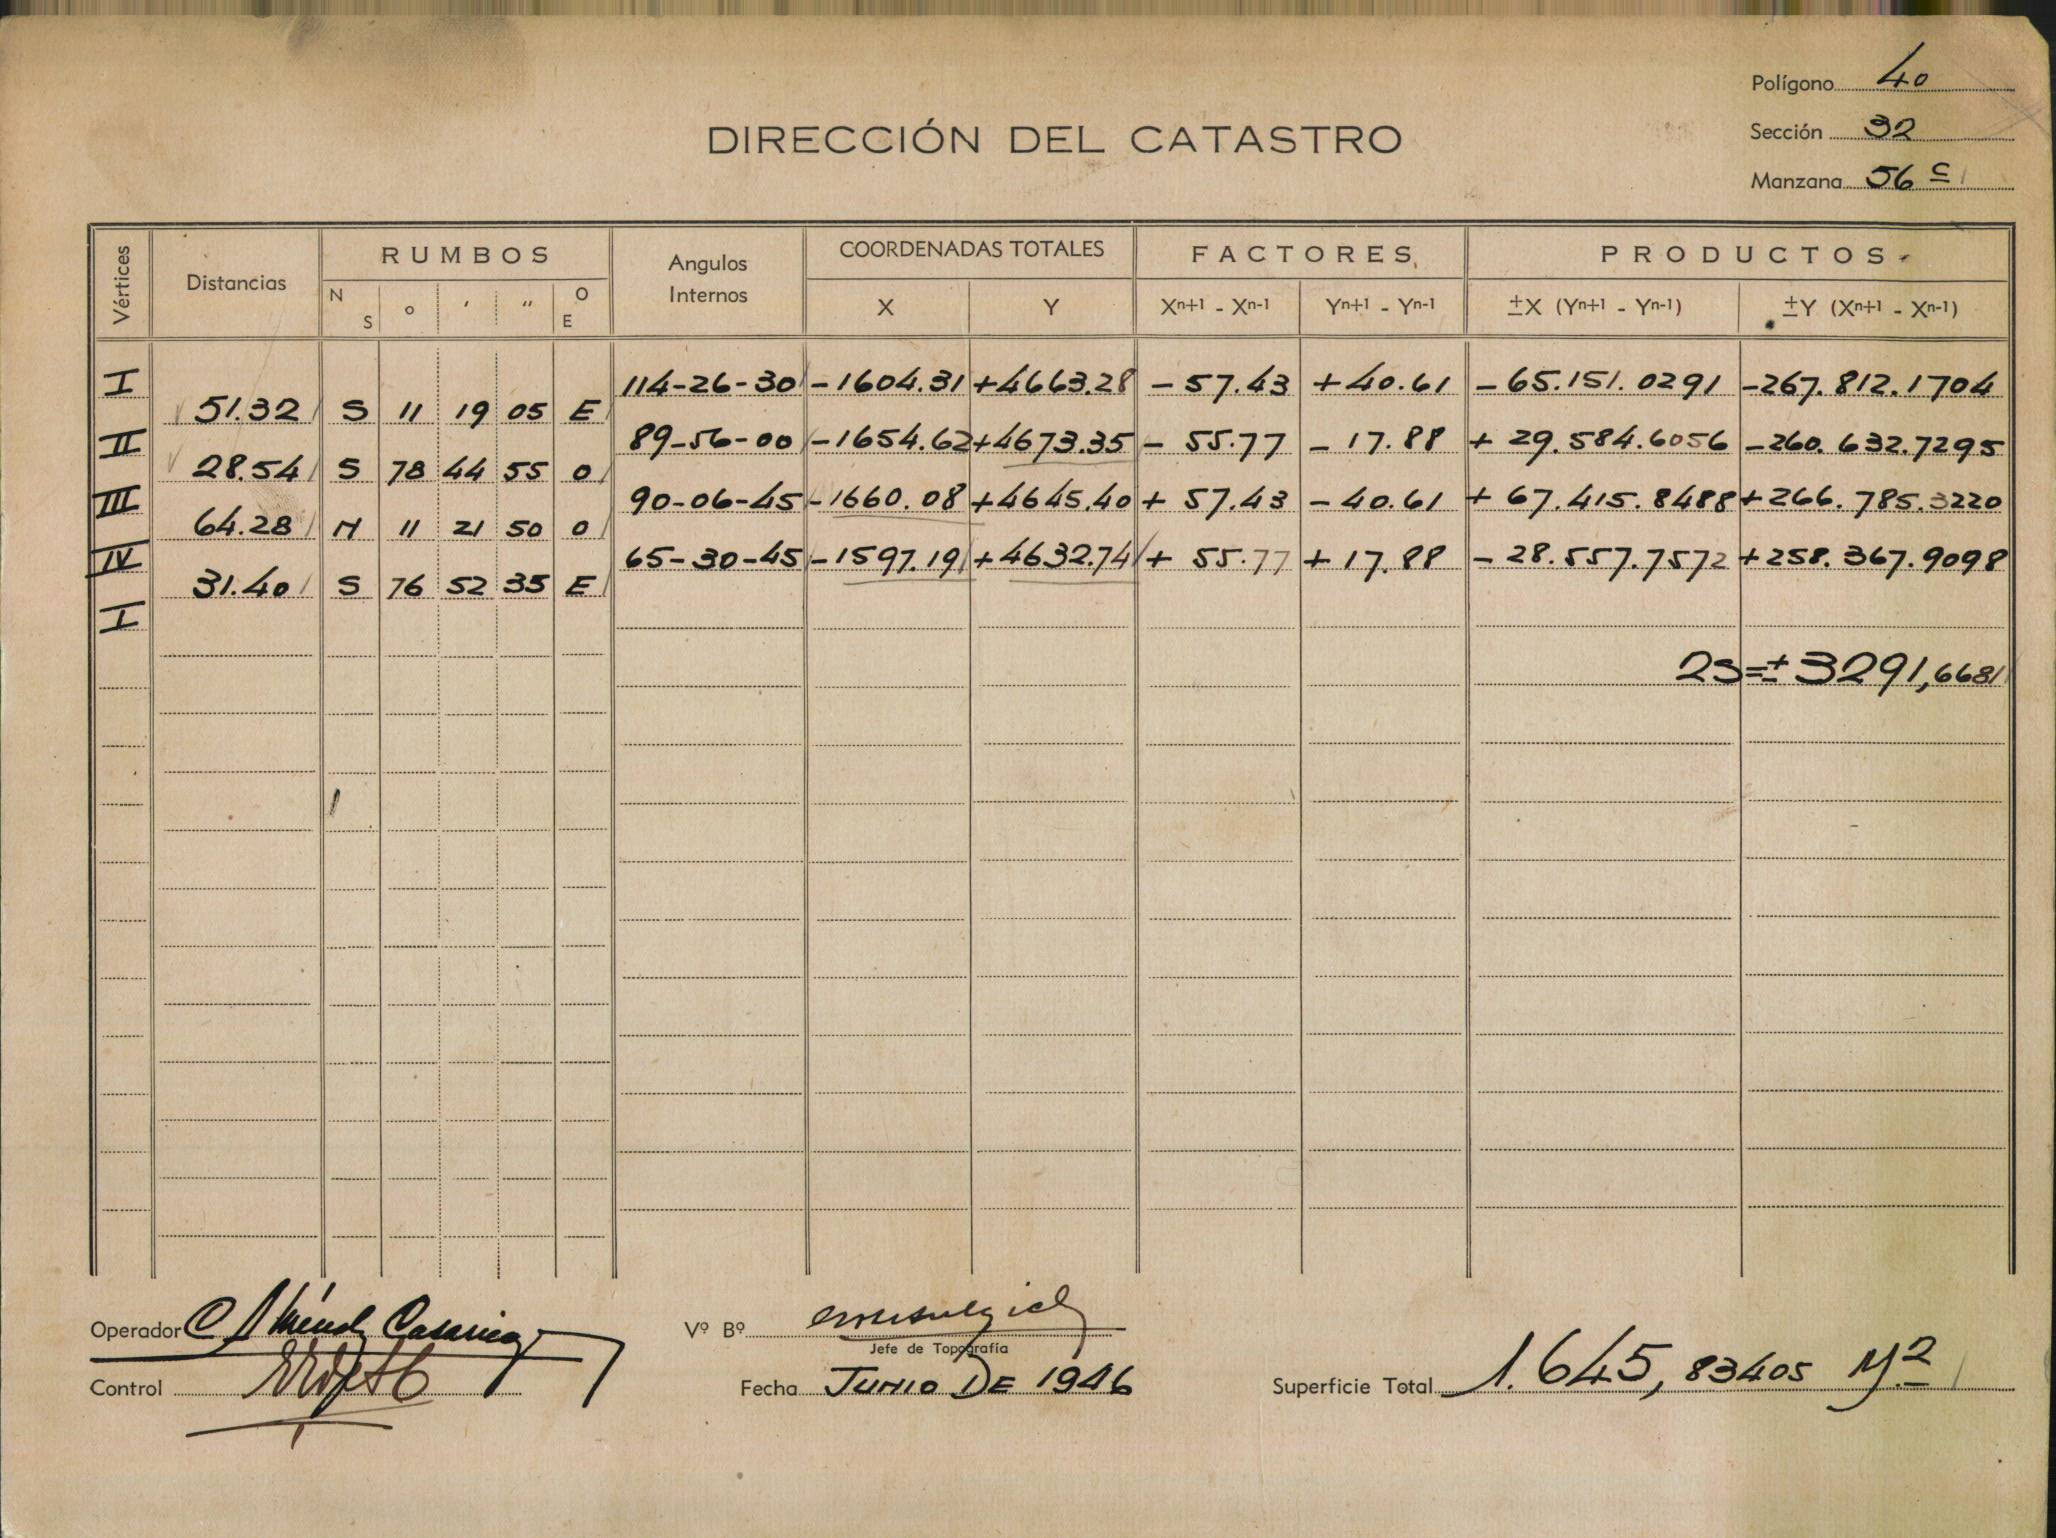 Polígono 40
DIRECCIÓN DEL CATASTRO
Sección 32
Manzana 56 c
Vértices Distancias RUMBOS Angulos Internos COORDENADAS TOTALES FACTORES PRODUCTOS
N S ° ʹ ʺ O E X Y Xn+1 - Xn-1 Yn+1 - Yn-1 ±X (Yn+1 - Yn-1) ±Y (Xn+1 - Xn-1)
I 114-26-30 -1604.31 +4663.28 - 57.43 + 40.61 - 65.151.0291 -267.812.1704
51.32 S 11 19 05 E
II 89-56-00 -1654.62 +4673.35 - 55.77 - 17.88 + 29.584.6056 -260.632.7295
28.54 S 78 44 55 O
III 90-06-45 -1660.08 +4645.40 + 57.43 - 40.61 + 67.415.8488 +266.785.3220
64.28 N 11 21 50 O
IV 65-30-45 -1597.19 +4632.74 + 55.77 + 17.88 - 28.557.7572 +258.367.9098
31.40 S 76 52 35 E
I
2S=± 3291,6681
Operador C
Vº Bº
Jefe de Topografía
Control
Fecha JUNIO DE 1946
Superficie Total 1.645,83405 M.2